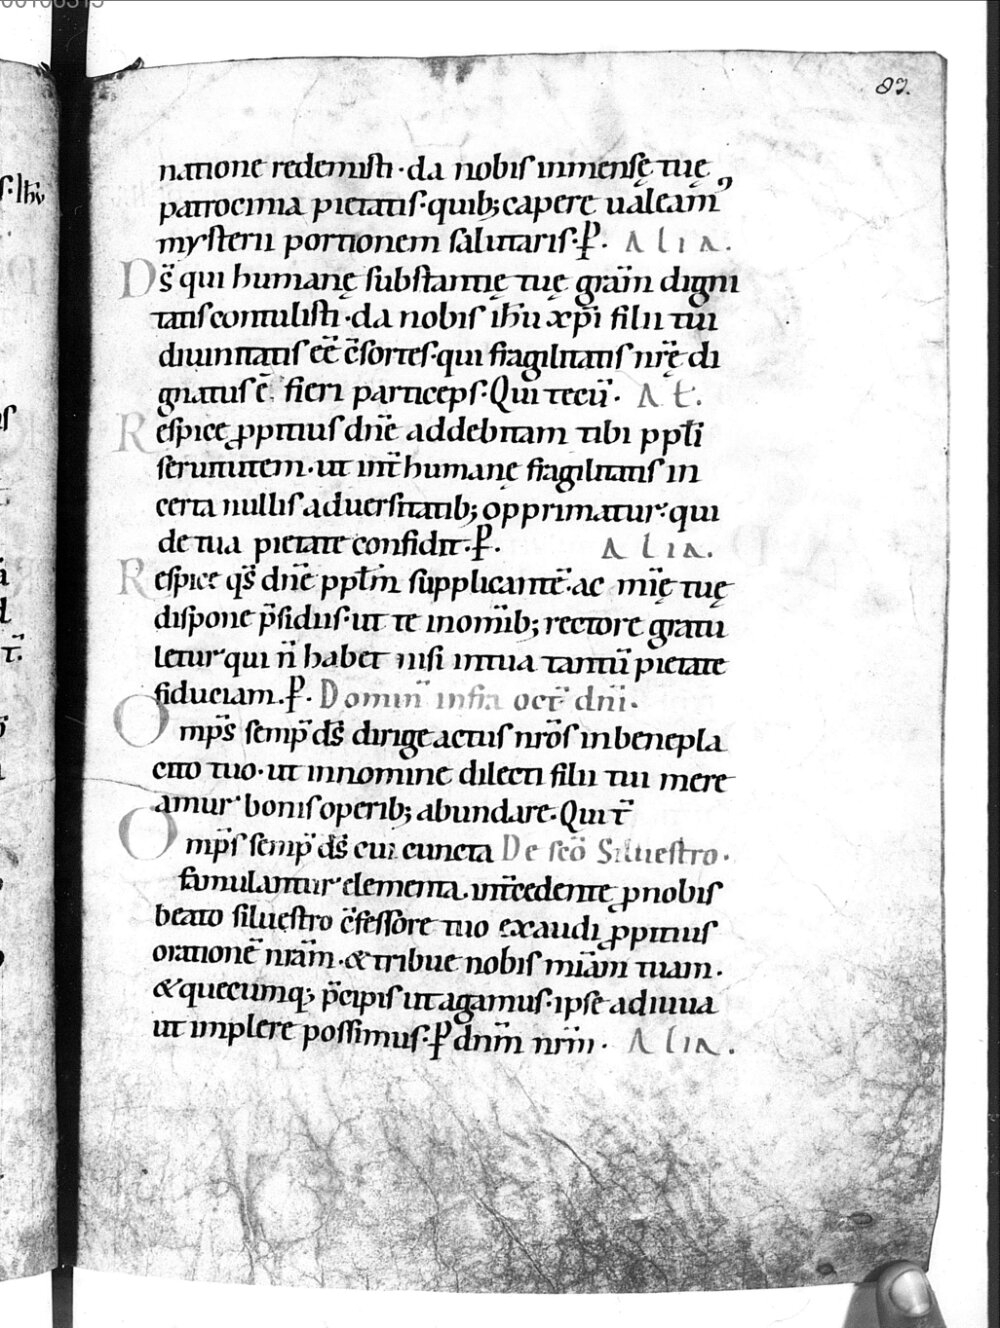 83.
natione redemisti · da nobis inmensę tuę
patrocinia pietatis · quib; capere ualeam᾽
mysterii portionem salutaris · p̲. ALIA.
Ds̄ qui humanę substantię tuę gram̄ digni
tatis contulisti · da nobis ih̄u xp̄i filii tui
diuinitatis ee̅ c̄sortes · qui fragilitatis nr̄ę di
gnatus ē fieri particeps · Qui tecū · At.
Respice ꝓpitius dn̄e ad debitam tibi ppl̄i
seruitutem · ut int̄ humanę fragilitatis in
certa nullis aduersitatib; opprimatur · qui
de tua pietate confidit · p̲. ALIA.
Respice qs̄ dn̄e ppl̄m supplicantē · ac mīę tuę
dispone p̄sidiis · ut te in om̄ib; rectore gratu
letur qui n̄ habet nisi in tua tantū pietate
fiduciam. p̲. Domin̄ infra oct̄ dn̄i.
Omp̄s semp̄ ds̄ dirige actus nr̄os in benepla
cito tuo · ut in nomine dilecti filii tui mere
amur bonis operib; abundare · Qui t̄
Omp̄s semp̄ ds̄ cui cuncta De sc̄o Siluestro.
famulantur elementa. int̄cedente ꝓ nobis
beato siluestro c̄fessore tuo exaudi ꝓpitius
orationē nrām · & tribue nobis mīam tuam ·
& quecumq; p̄cipis ut agamus · ipse adiuua
ut implere possimus · p̲ dn̄m nr̄m · ALIA.